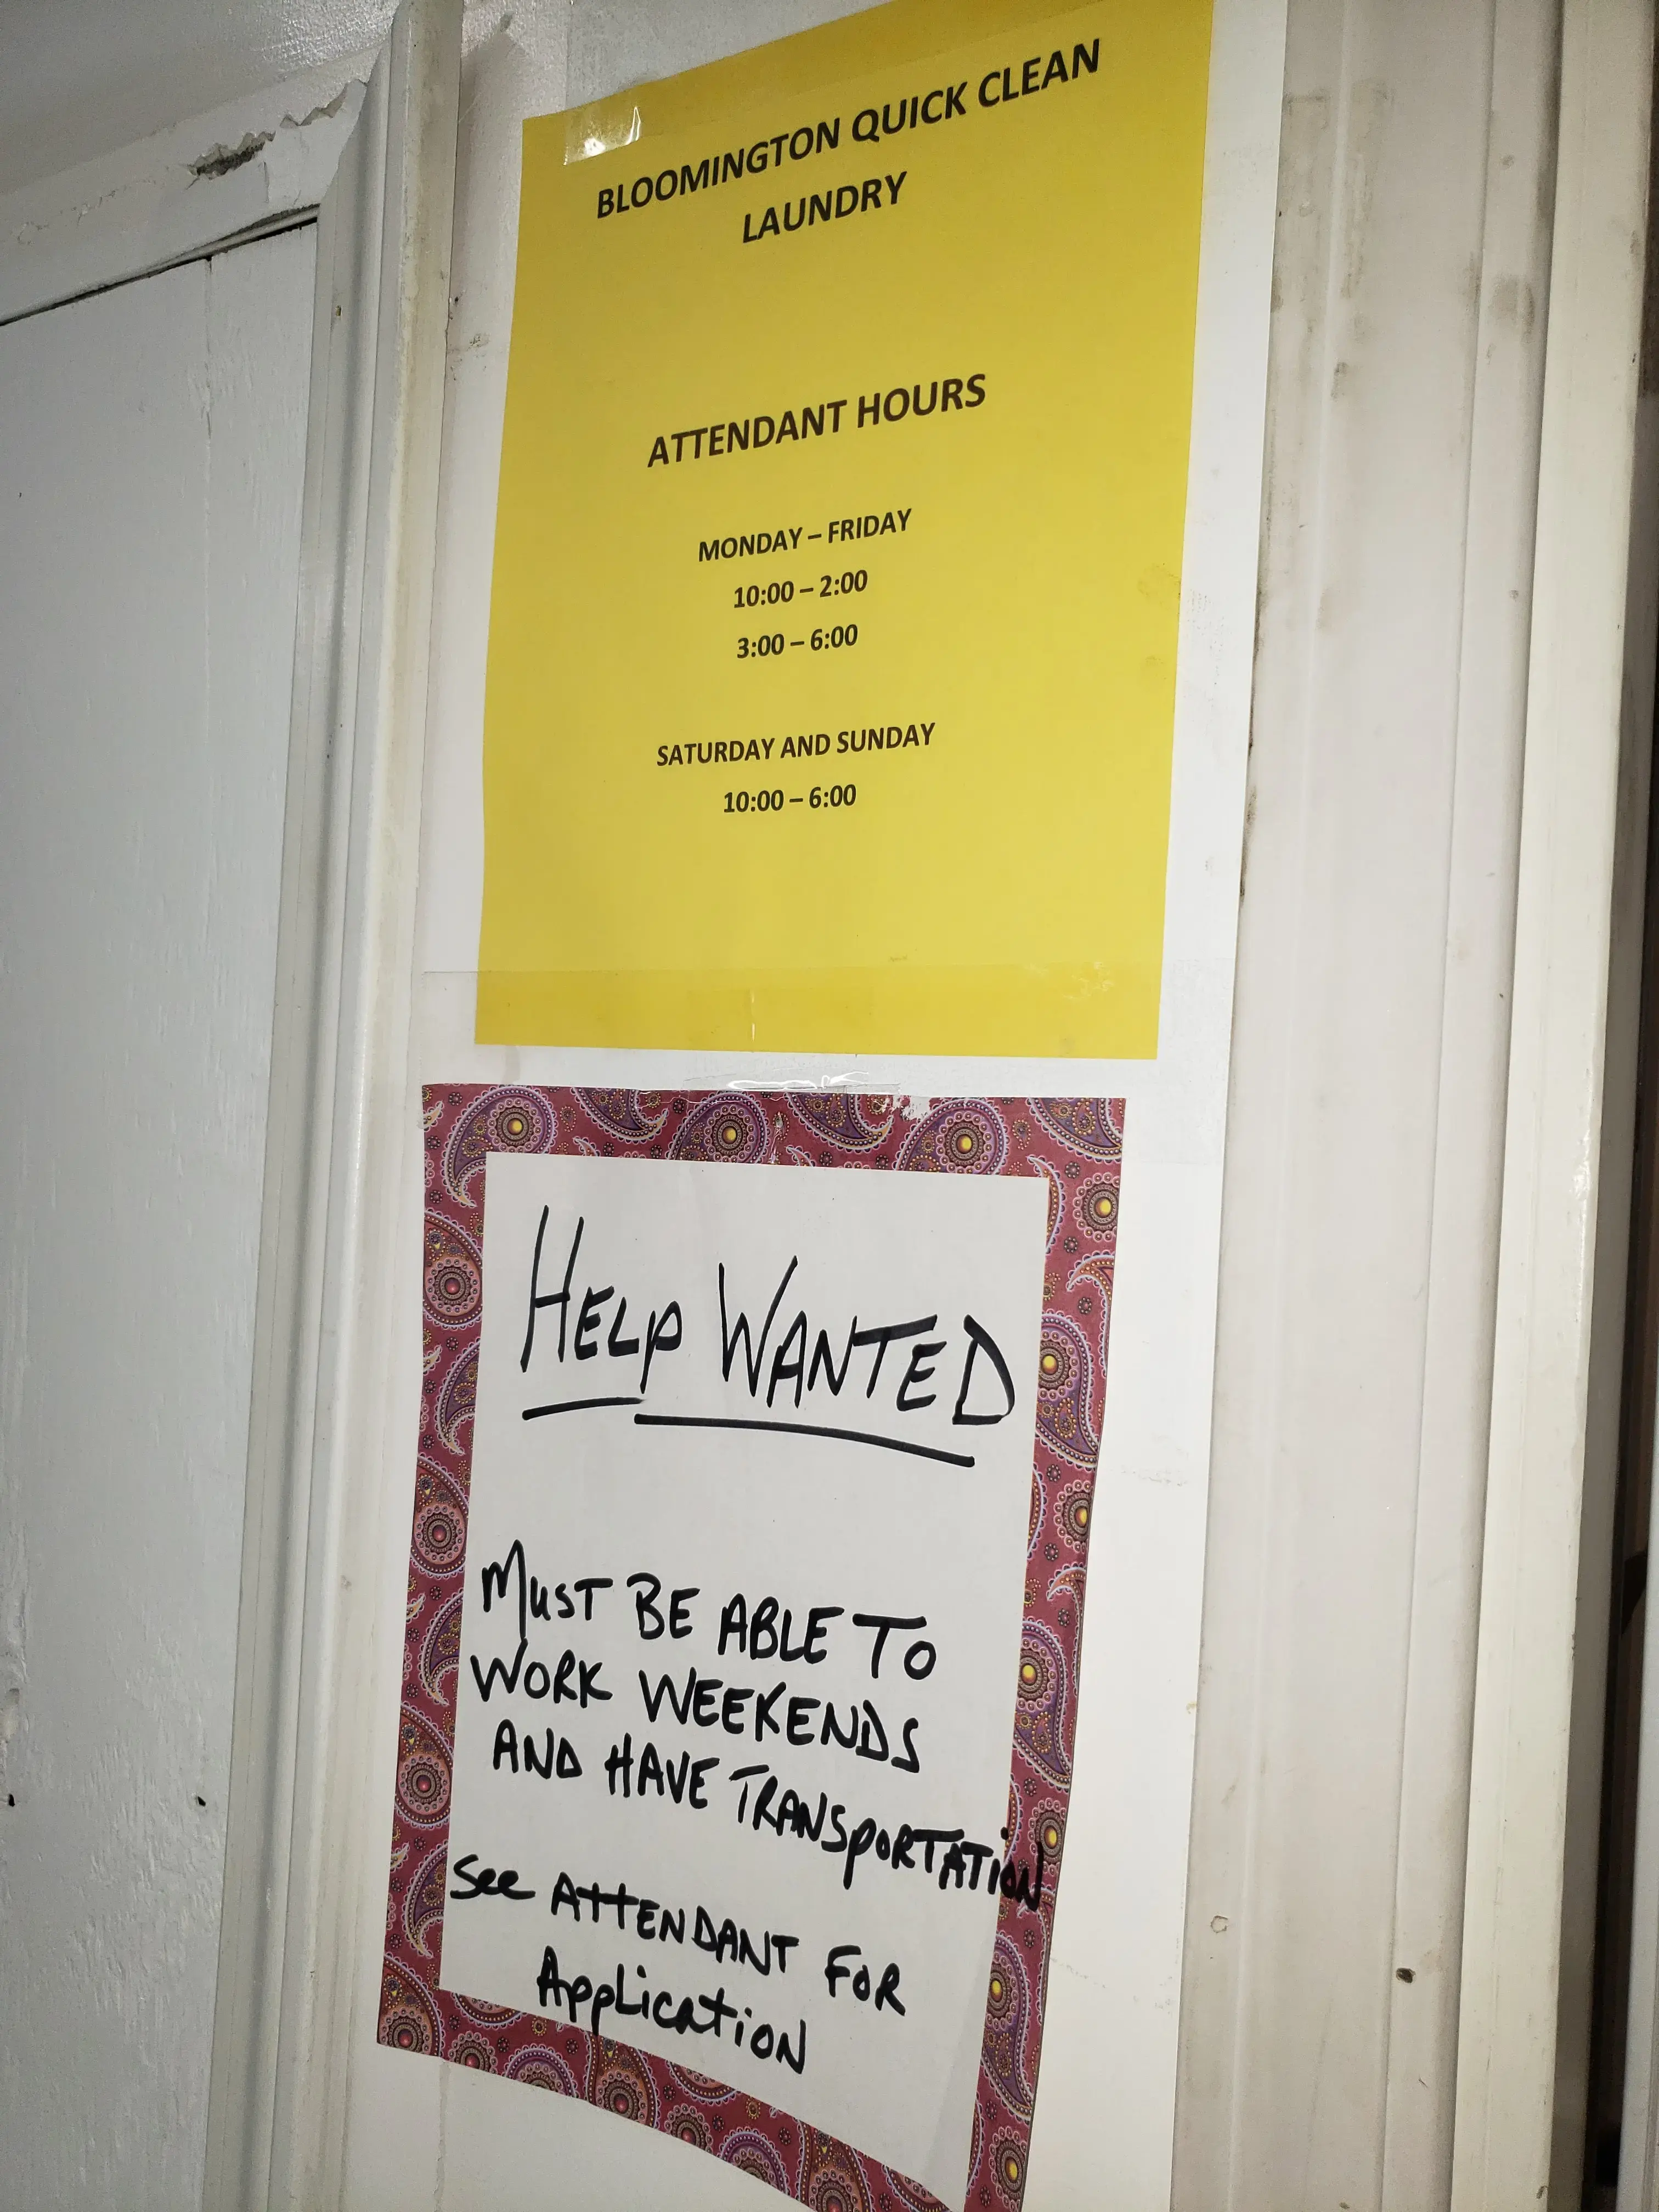 BLOOMINGTON QUICK CLEAN
LAUNDRY
ATTENDANT HOURS
MONDAY – FRIDAY
10:00 – 2:00
3:00 – 6:00
SATURDAY AND SUNDAY
10:00 – 6:00
HELP WANTED
MUST BE ABLE TO
WORK WEEKENDS
AND HAVE TRANSPORTATION
See ATTENDANT FOR
Application